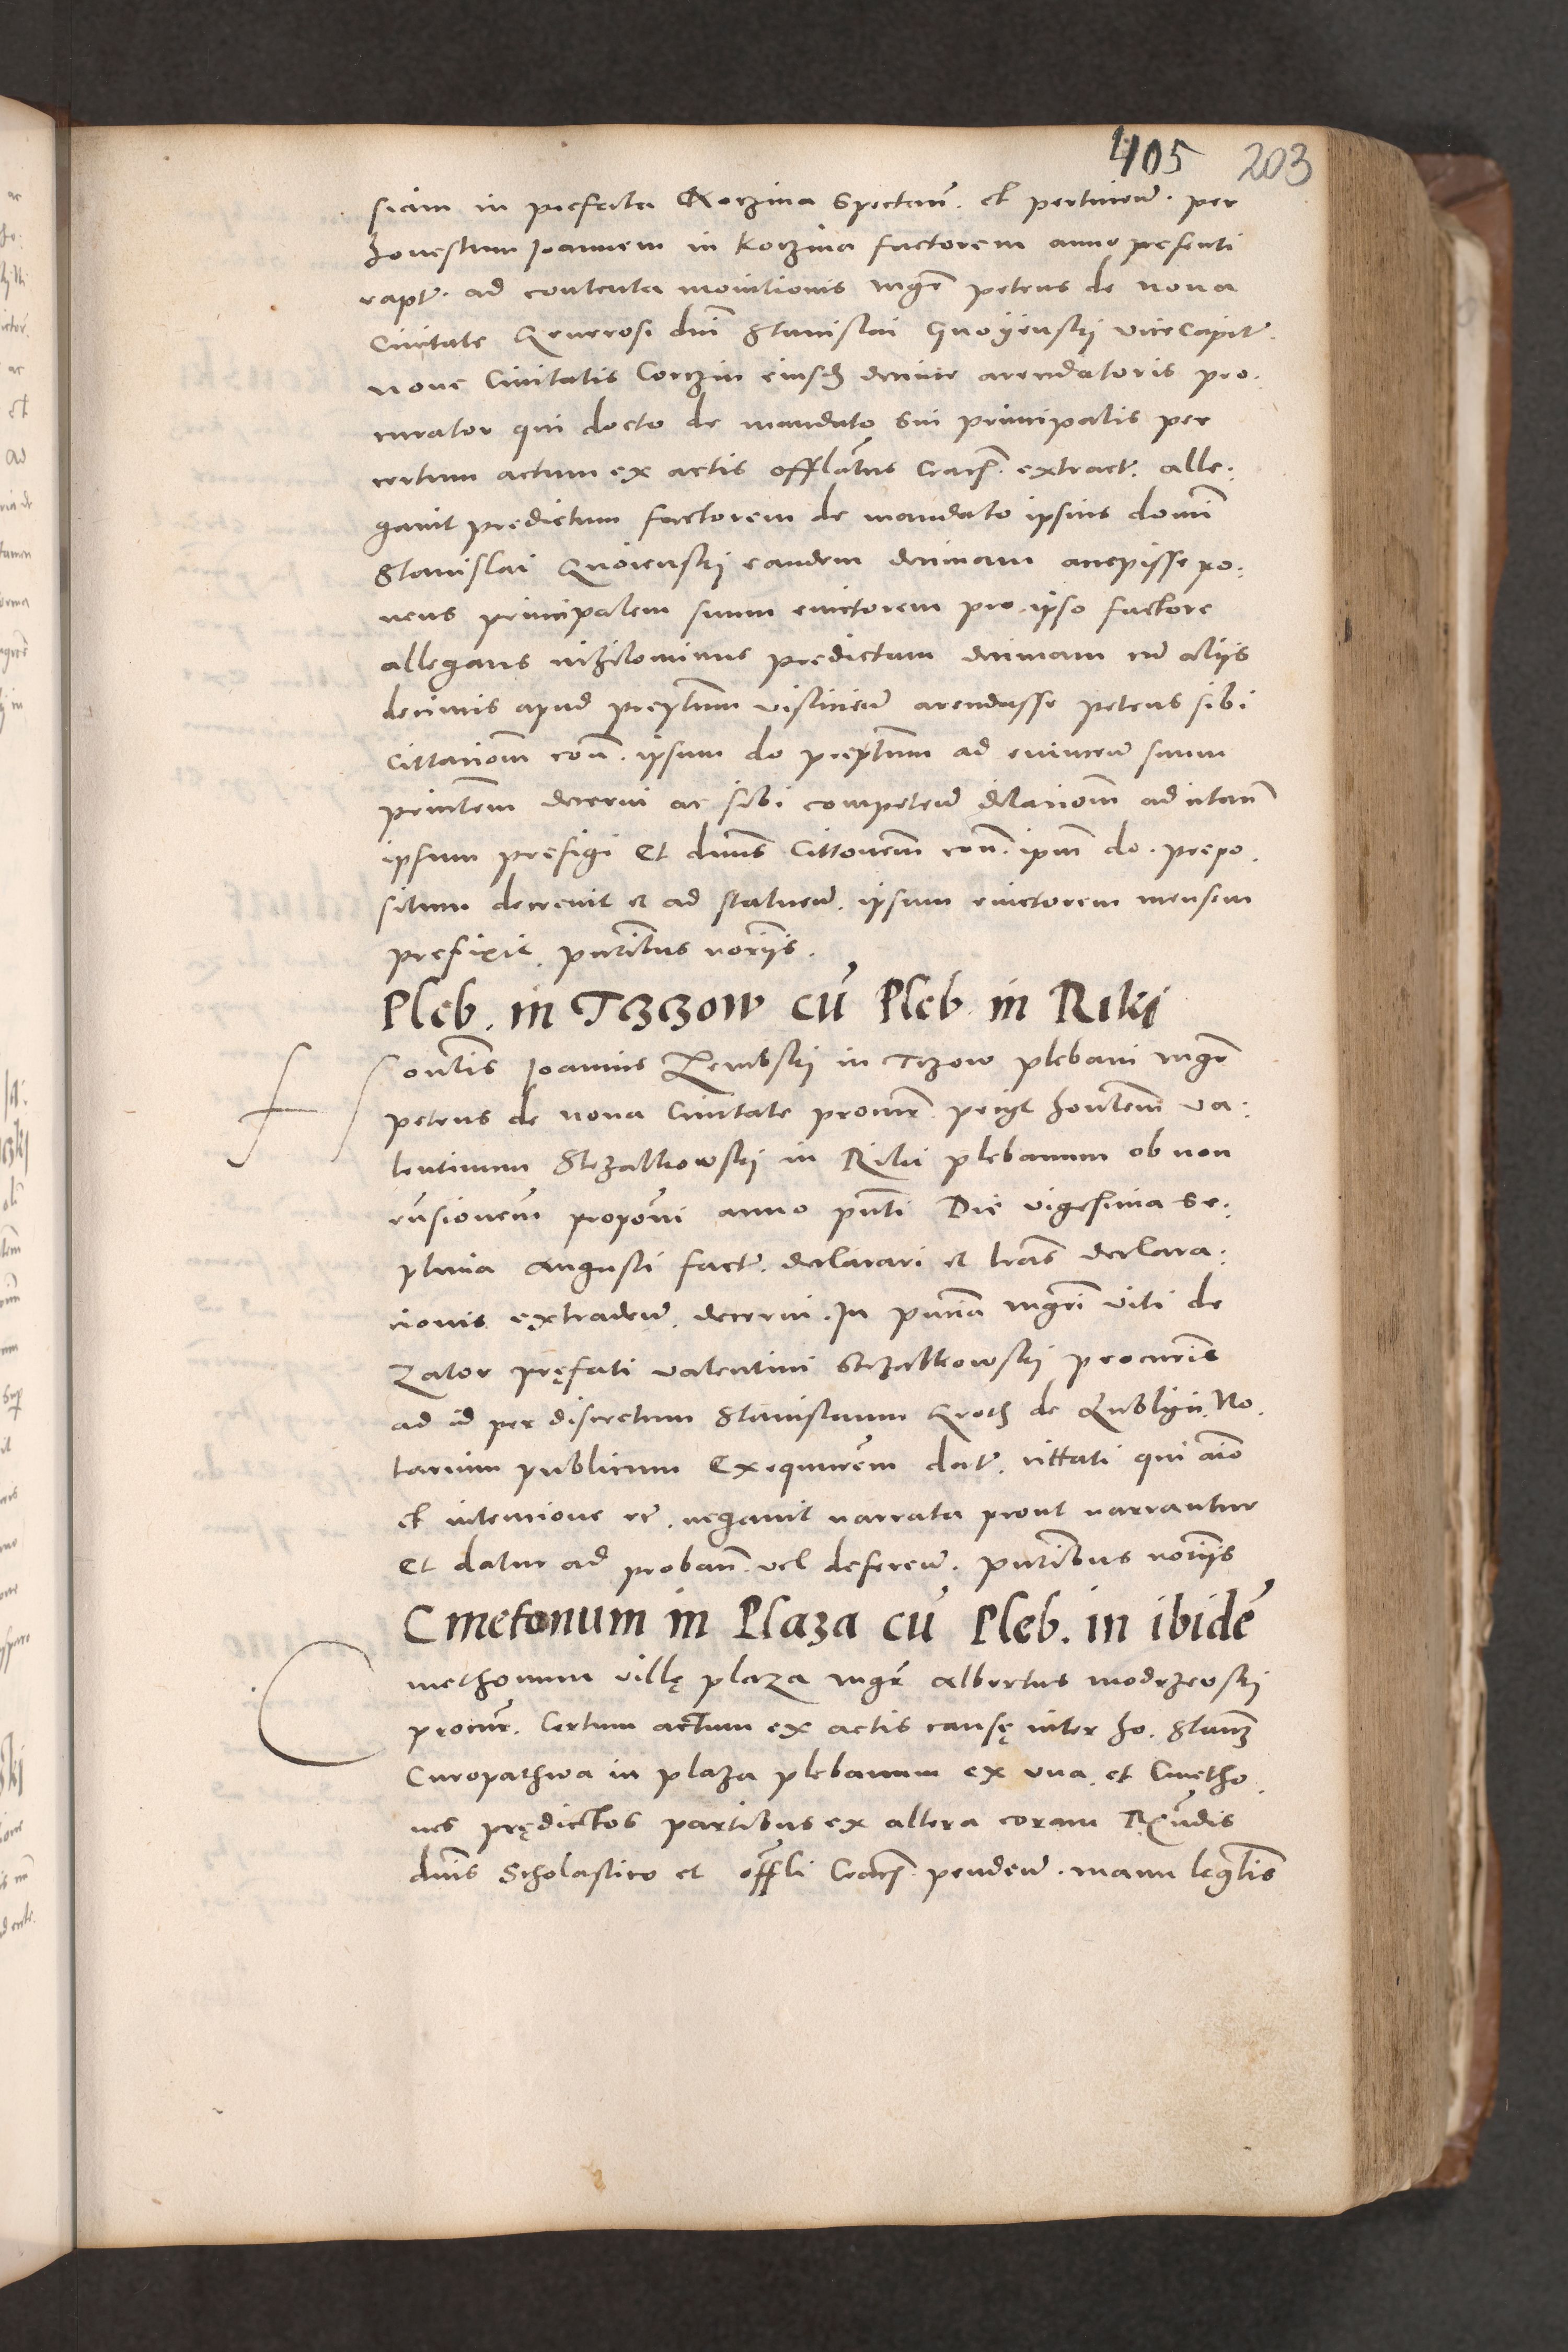 405 203
siam in prefata Korzina spectan̄. et pertineñ. per
honestum Joannem in Korzina factorem anno presenti
rapt̄. ad contenta monitionis mgr̄ petrus de nova
Civitate Generosi dn̄i Stanislai Gnoyenskj viceCapit̄.
nove Civitatis Corczin eiusd̄ decime arendatoris pro.
curator qui docto de mandato sui principalis per
certum actum ex actis offlātus Cracn̄. extract̄. alle.
gavit predictum factorem de mandato ipsius domi
Stanislai Gnoienskj eandem decimam accepisse po.
nens principalem suum evictorem pro ipso factore
allegans nihilominus predictam decimam cū aliis
decimis apud prep̄tum visliceñ arendasse petens sibi
Cittacionem̄ con̄. ipsum do prep̄tum ad evinceñ suum
princ̄lem decerni ac sibi competeñ dilacionem̄ ad citan̄
ipsum prefigi Et dnūs Cittonem̄ con̄. ipm̄ do. prepo.
situm decrevit et ad statueñ. ipsum evictorem mensem
prefixit. pn̄tibus noriis.
Pleb. in Tczczow cū Pleb. in Riki
Hon̄lis Joannis Zembskj in Tczow plebani mgr̄
petrus de nova Civitate procur̄. peiit hon̄lem̄ va.
lentinum Strzalkowskj in Riki plebanum ob non
cēsionem̄ propon̄i anno pn̄ti Die vigesima se.
ptima Augusti fact̄. declarari et lrās declara.
cionis extradeñ. decerni. In pn̄cia mgr̄i viti de
Zator pręfati valentini Strzalkowskj procuris̄
ad id per discretum Stanislaum Groth de Lublyn. No.
tarium publicum Exequcr̄em dat̄. cittati qui aīo
et intencione etc̄. negavit narrata prout narrantur
et datur ad proban̄. vel defereñ. pn̄tibus noriis
Cmetonum in Plaza cū Pleb. in ibidē
Cmethonum villę plaza mgr̄ Albertus modrzewskj
procur̄. Certum actum ex actis causę inter ho. Stanȝ
Curopathwa in plaza plebanum ex una. et Cmetho.
nes prędictos partibus ex altera coram Rēndis
dn̄is Scholastico et offli Cracn̄. pendeñ. manu leg̅lis